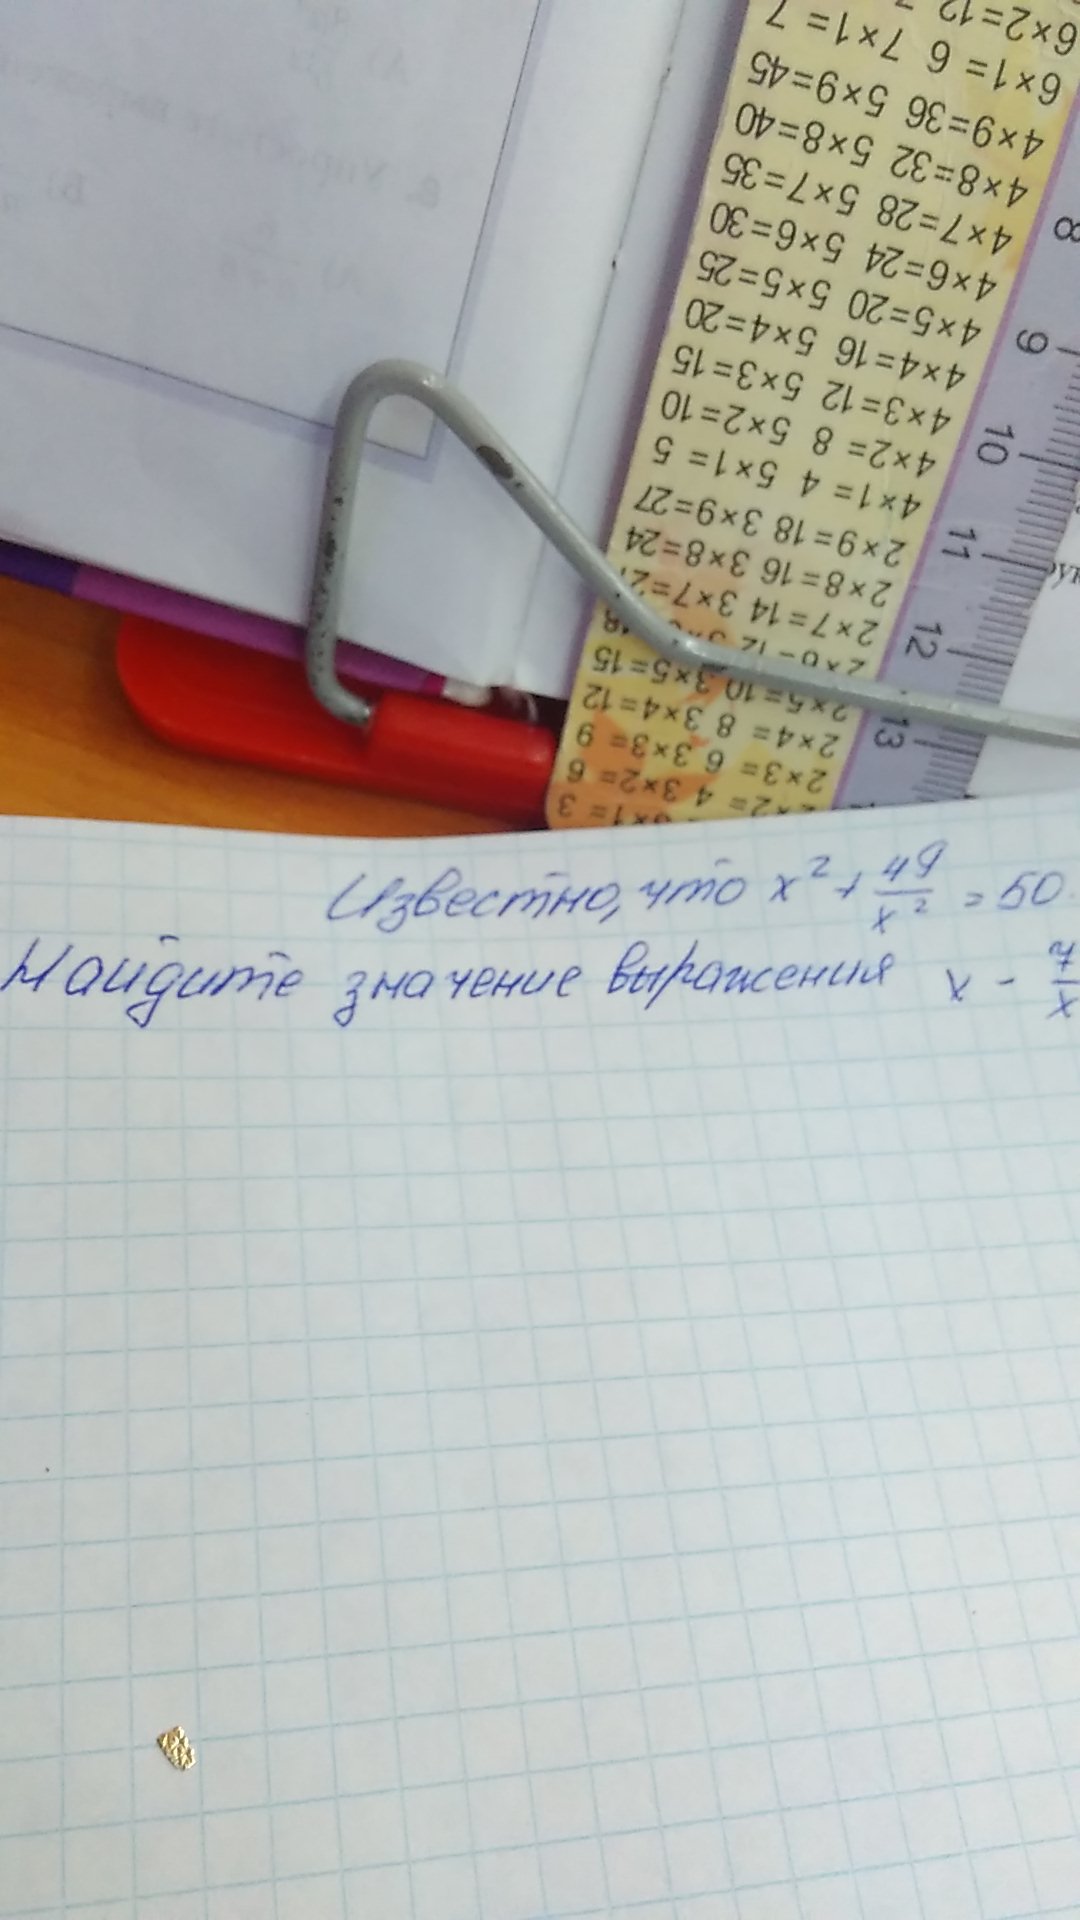 6×2=12
6×1= 6 7×1= 7
4×9=36 5×9=45
4×8=32 5×8=40
4×7=28 5×7=35
4×6=24 5×6=30
4×5=20 5×5=25
4×4=16 5×4=20
4×3=12 5×3=15
4×2= 8 5×2=10
4×1= 4 5×1= 5
2×9=18 3×9=27
2×8=16 3×8=24
2×7=14 3×7=2
2×5=10 3×5=15
2×4= 8 3×4=12
2×3= 6 3×3= 9
×2= 4 3×2= 6
×1= 3
8
9
10
11
12
13
Известно, что x² + 49/x² = 50.
Найдите значение выражения x - 7/x